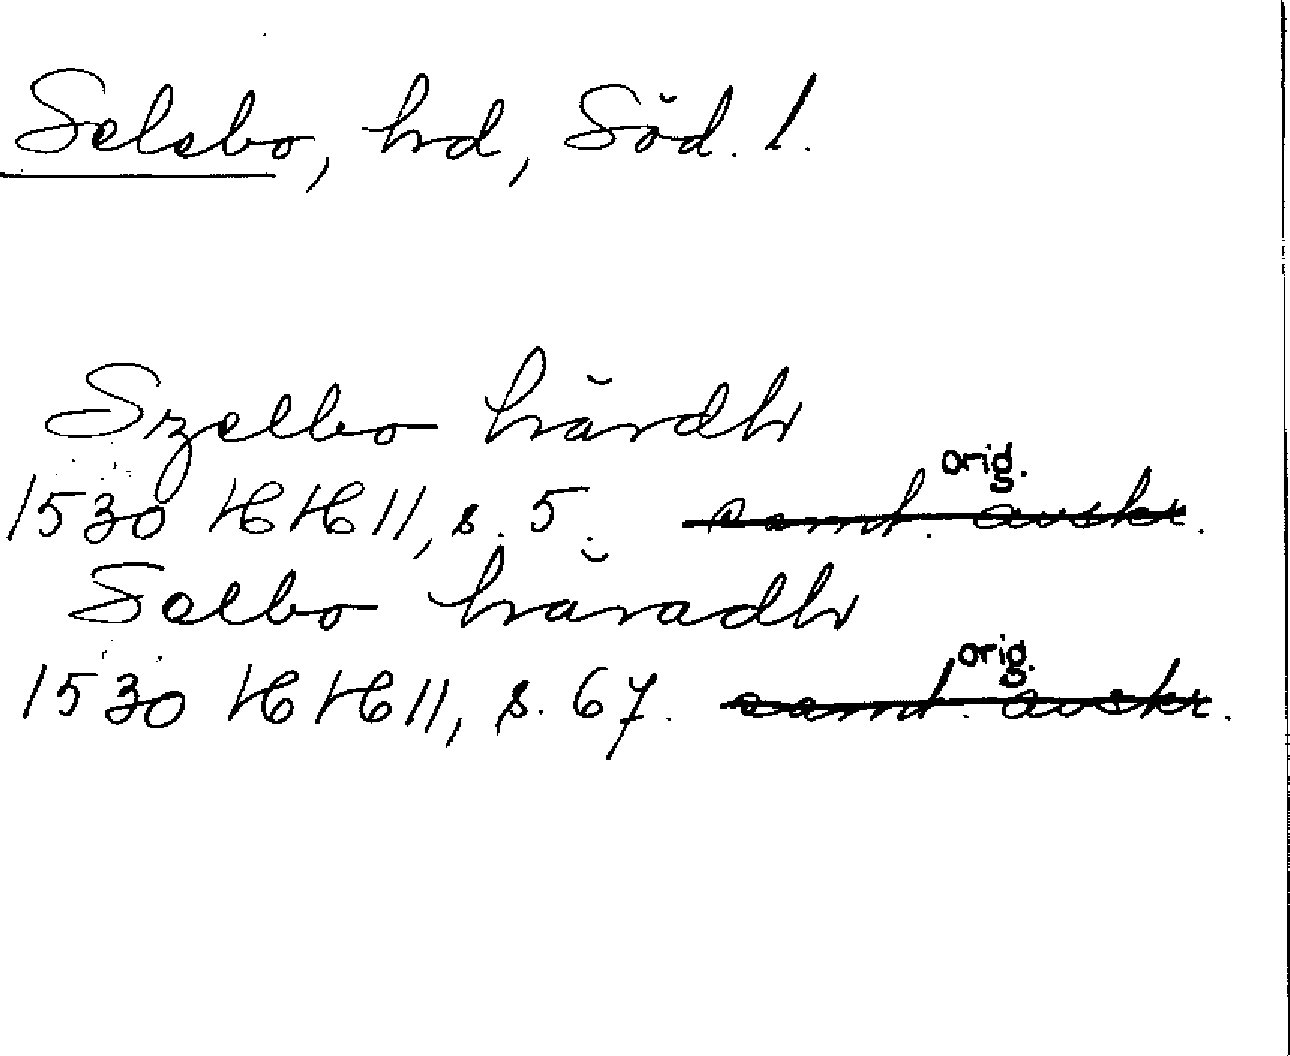 Selebo, hd, Söd. l.
Szelbo härdh
orig.
1530 HH 11, s. 5. samt. avskr.
Selbo häradh
orig.
1530 HH 11, s. 67. samt. avskr.